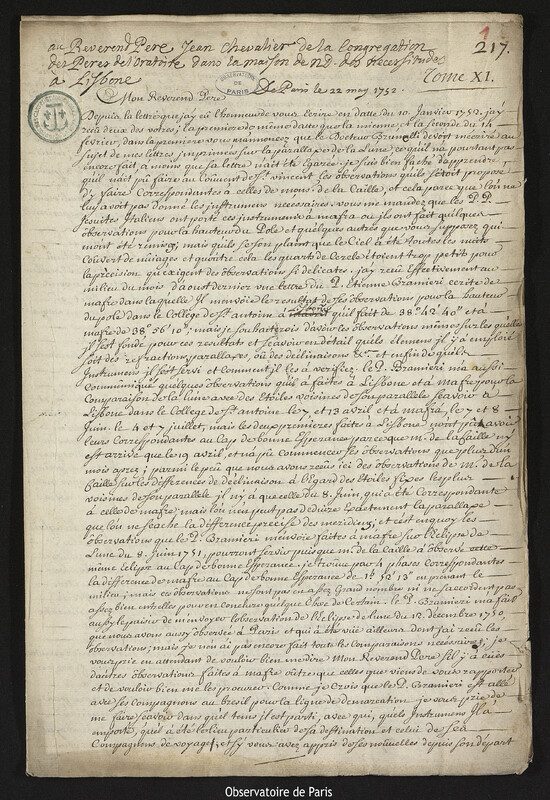 1
217.
au Reverend Pere Jean Chevalier de la Congregation
des Peres de l'oratoire dans la maison de ND. des necessitudes
à Lisbone
Tome XI.
OBSERVATOIRE DE PARIS
Mon Reverend Pere
De Paris le 22 may 1752.
Depuis la lettre que jay eu l'honneur de vous Ecrire en datte du 10. Janvier 1752. jay
receu deux des votres; la premiere de même datte que la mienne et la seconde du 15
fevrier, dans la premiere vous m'annoncez que le Docteur devoit m'écrire au
sujet de mes lettres imprimées sur la parallaxe de la Lune, ce qu'il na pourtant pas
encore fait, à moins que sa lettre n'ait été Egarée. je suis bien faché d'apprendre
qu'il nait pû faire au couvent de St. vincent les observations qu'il s'étoit proposé
d'y faire Correspondantes à celles de mons. de la Caille, et cela parce que l'on ne
luy avoit pas donné les instrumens necessaires. vous me mandez que les P.P.
Jesuites Italiens ont porté ces instrumens à mafra ou ils ont fait quelques
observations pour la hauteur du Pole et quelques autres que vous supposez qui
mont été remises, mais quils se sont plaint que le Ciel a été toutes les nuits
Couvert de nuages et qu'outre cela les quarts de Cercle étoient trop petits pour
la précision qu'exigent des observations si delicates. jay receu Effectivement au
milieu du mois d'aoust dernier une lettre du P. Etienne Bramieri écrite de
mafre dans laquelle Il m'envoie le resultat de ses observations pour la hauteur
du pole dans le College de St. antoine à Lisbone qu'il fait de 38° 42' 40" et à
mafre de 38° 56' 10"; mais je souhaiterois d'avoir les observations mêmes sur lesquelles
il s'est fondé pour ces resultats et sçavoir en détail quels elemens il y a emploié
soit des refractions parallaxes, ou des déclinaisons &c. et enfin de quels
Instrumens il s'est servi et comment il les a verifiez. le P. Bramieri m'a aussi
communiqué quelques observations qu'il a faites à Lisbone et à mafre pour la
Comparaison de la Lune avec des Etoiles voisines de son parallele sçavoir à
Lisbone dans le College de St. antoine le 7 et 13 avril et à mafra, le 7 et 8
Juin. le 4 et 7 juillet, mais les deux premieres faites à Lisbone nont pû avoir
leurs correspondantes au Cap de bonne Esperance parce que m. de la Caille n'y
est arrivé que le 19 avril, et n'a pû commencer ses observations que plus d'un
mois aprez; parmi le peu que nous avons receus ici des observations de Mr. de la
Caille sur les differences de déclinaison à l'Egard des Etoiles fixes les plus
voisines de son parallele il n'y a que celle du 8. Juin, qui a été Correspondante
à celle de mafre; mais l'on n'en peut pas deduire Exactement la parallaxe
que l'on ne sçache la difference précise des meridiens, et c'est en quoy les
observations que le P. Bramieri m'envoie faites à mafre sur l'Eclipse de
Lune du 8. Juin 1751, pourront servir puisque m. de la Caille a observé cette
même Eclipse au Cap de bonne Esperance. je trouve par 4 phases correspondantes
la difference de mafre au Cap de bonne Esperance de 1h 52' 13" en prenant le
milieu, mais ces observations ne sont pas en assez Grand nombre ni ne s'accordent pas
assez bien entre elles pour en conclure quelque Chose de Certain. le P. Bramieri m'a fait
aussy le plaisir de m'envoyer l'observation de l'Eclipse de Lune du 12. décembre 1750
que nous avons aussy observée à Paris et qui a été vue ailleurs dont j'ai receu les
observations; mais je n'en ai pas encore fait toute les Comparaisons necessaires; je
vous prie en attendant de vouloir bien me dire Mon Reverend Pere s'il y a eu
d'autres observations faites à mafre outre que celles que viens de vous rapporter
et de vouloir bien me les procurer. Comme je Crois que le P. Bramieri est allé
avec ses Compagnons au bresil pour la ligne de demarcation je vous prie de
me faire sçavoir dans quel tems il est parti, avec qui, quels Instrumens Il a
emporté, quel a été le lieu particulier de sa destination et celui de ses
Compagnons de voyage, et sy vous avez appris de ses nouvelles depuis son départ
Observatoire de Paris